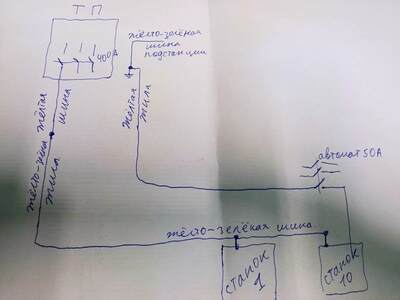 ТП
400А
жёлто-зелёная
шина
подстанции
жёлтая
шина
жёлтая
жила
жёлто-зелёная
жила
автомат 50А
жёлто-зелёная шина
станок
1
станок
10